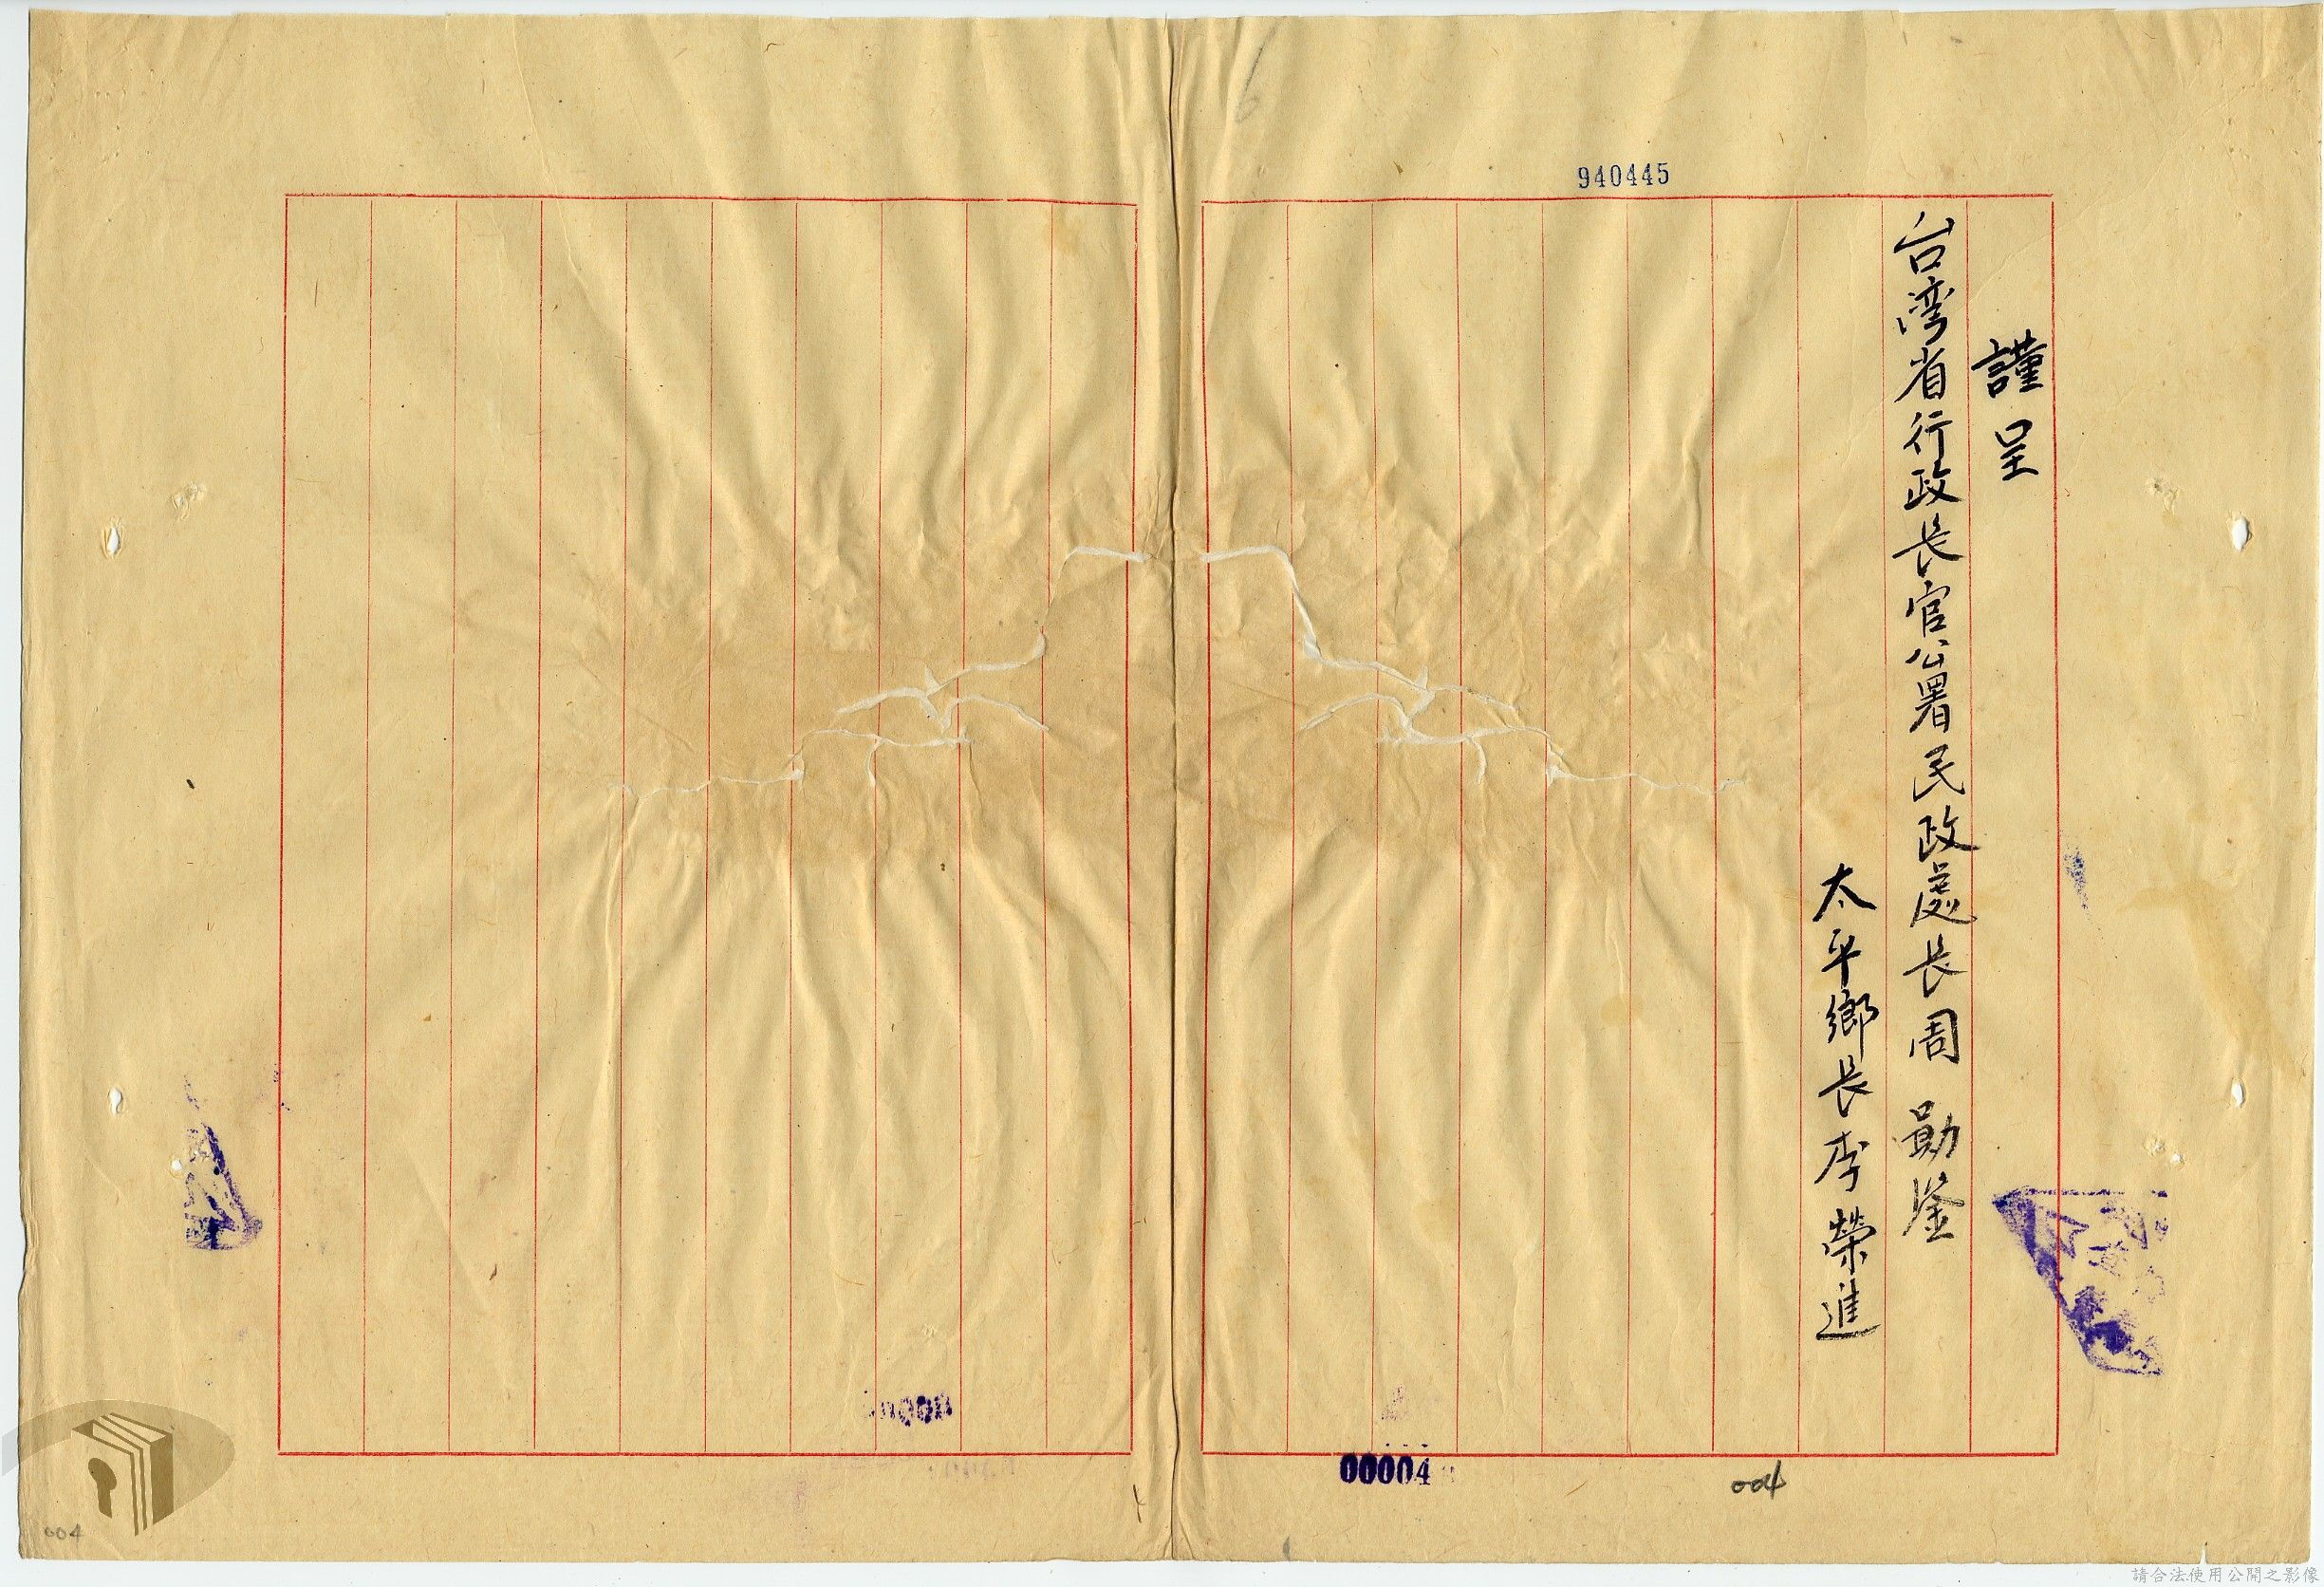 940445
謹呈
台湾省行政長官公署民政處長周 勛鑒
太平鄉長李榮進
00004
004
004
請合法使用公開之影像